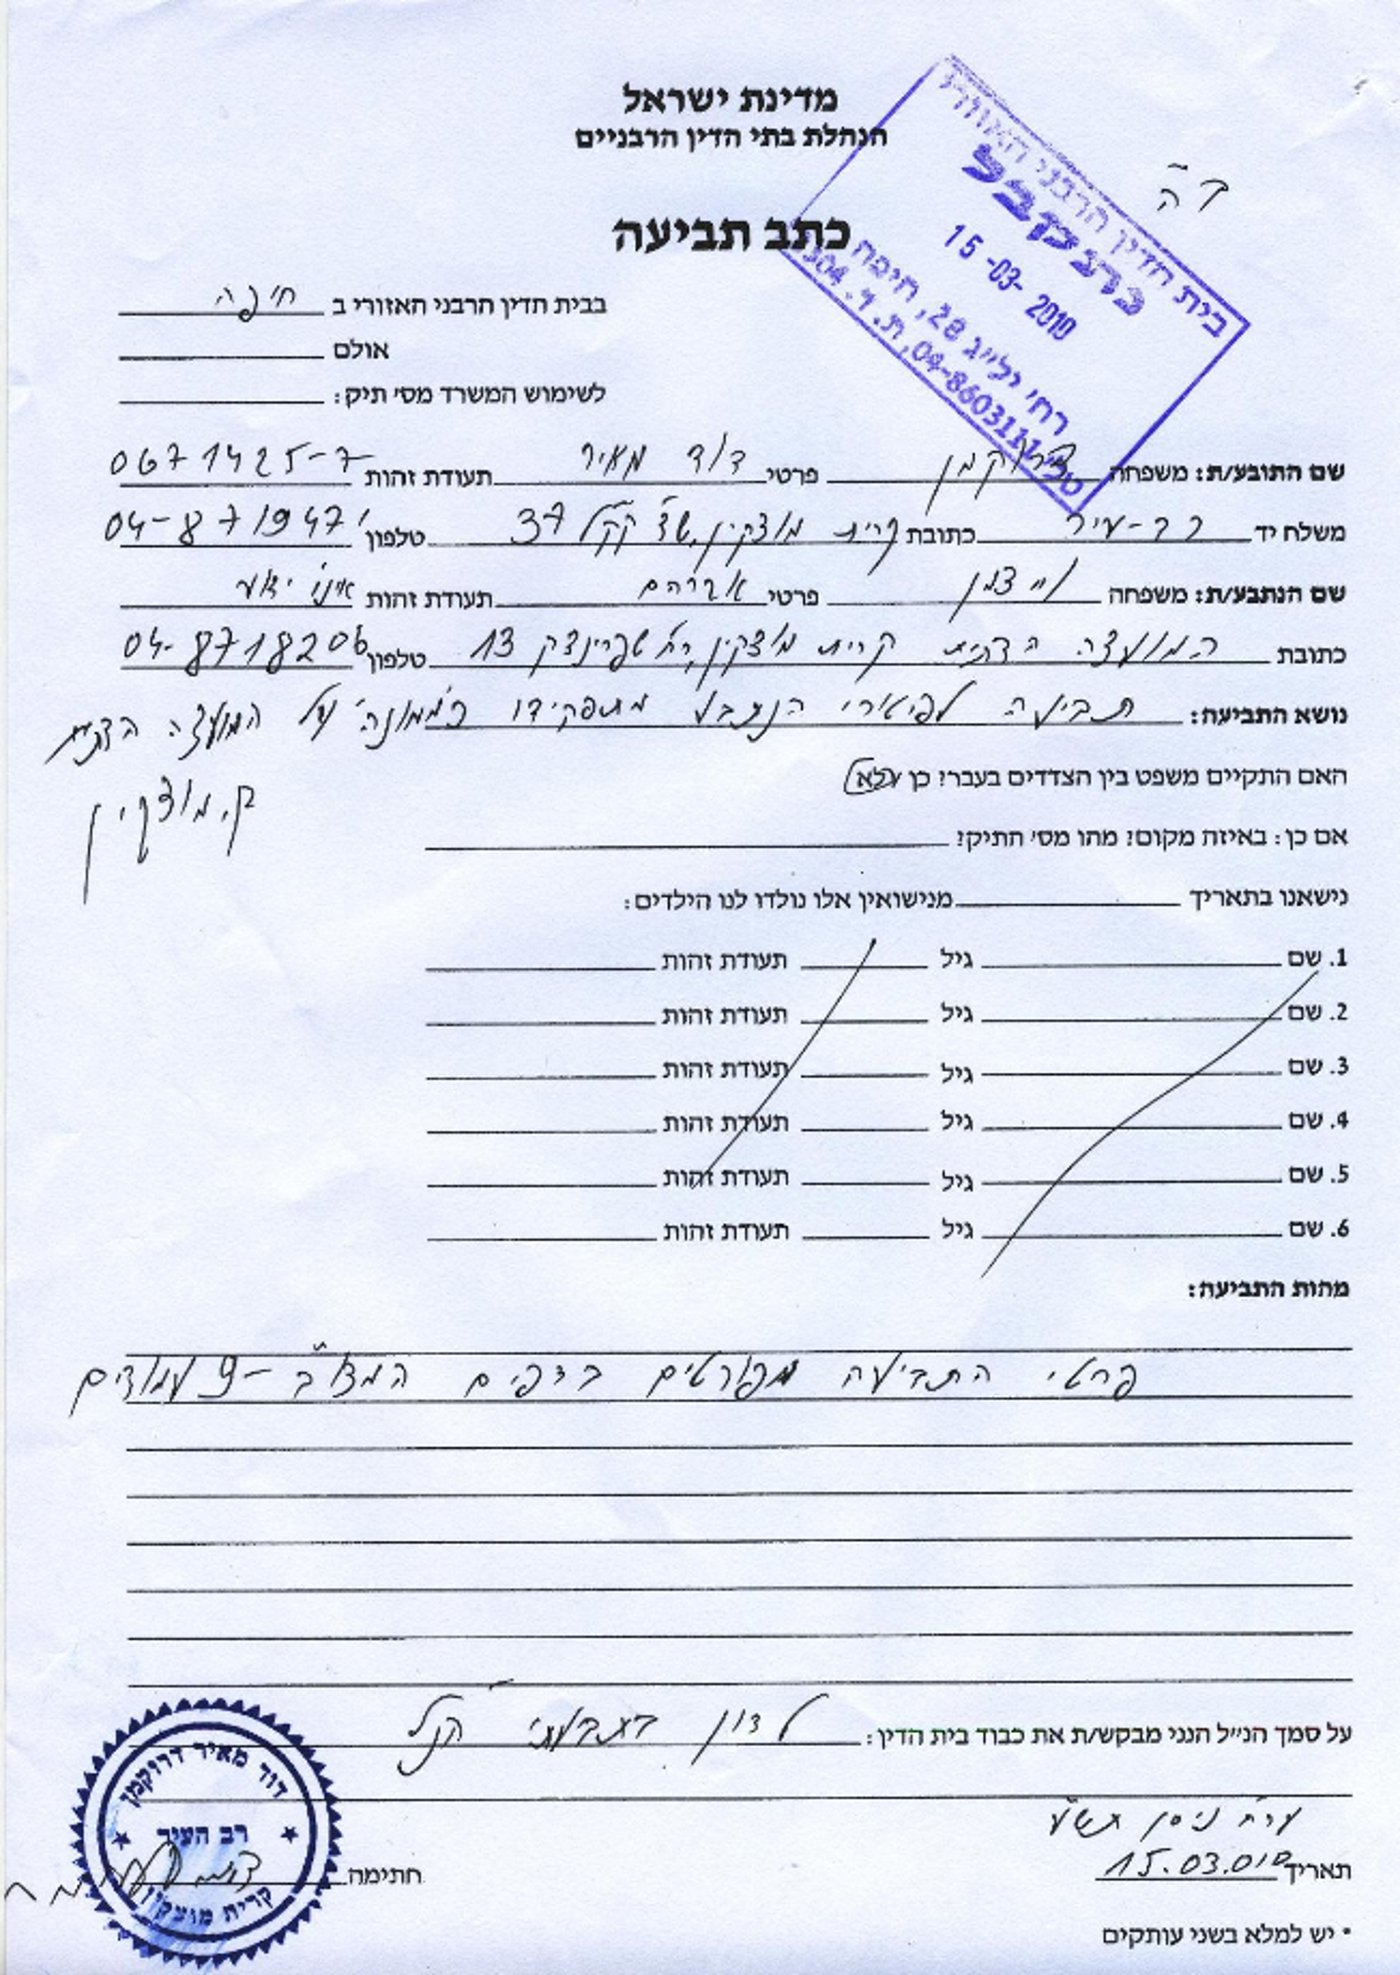 מדינת ישראל
הנהלת בתי הדין הרבניים
ב"ה
כתב תביעה
בית הדין הרבני האזורי
נתקבל
15-03-2010
רח' יל"ג 28, חיפה
טל: 04-8603111, ת.ד. 304
בבית הדין הרבני האזורי ב חיפה
אולם
לשימוש המשרד מס' תיק:
שם התובע/ת: משפחה דרוקמן פרטי דוד מאיר תעודת זהות 0671425-7
משלח יד רב-עיר כתובת קרית מוצקין, שד' קק"ל 37 טלפון 04-8719471
שם הנתבע/ת: משפחה ויצמן פרטי אברהם תעודת זהות אינו ידוע
כתובת המועצה הדתית קרית מוצקין, רח' שפרינצק 13 טלפון 04-8718206
נושא התביעה: תביעה לפיטורי הנתבע מתפקידו כ'ממונה' על המועצה הדתית
ק. מוצקין
האם התקיים משפט בין הצדדים בעבר? כן / לא
אם כן: באיזה מקום? מהו מס' התיק?
נישאנו בתאריך מנישואין אלו נולדו לנו הילדים:
1. שם גיל תעודת זהות
2. שם גיל תעודת זהות
3. שם גיל תעודת זהות
4. שם גיל תעודת זהות
5. שם גיל תעודת זהות
6. שם גיל תעודת זהות
מהות התביעה:
פרטי התביעה מפורטים בדפים המצו"ב - 9 עמודים
על סמך הנ"ל הנני מבקש/ת את כבוד בית הדין: לדון בתבעתי הנ"ל
ער"ח ניסן תש"ע
תאריך 15.03.010
חתימה
דוד מאיר דרוקמן
רב העיר
קרית מוצקין
* יש למלא בשני עותקים